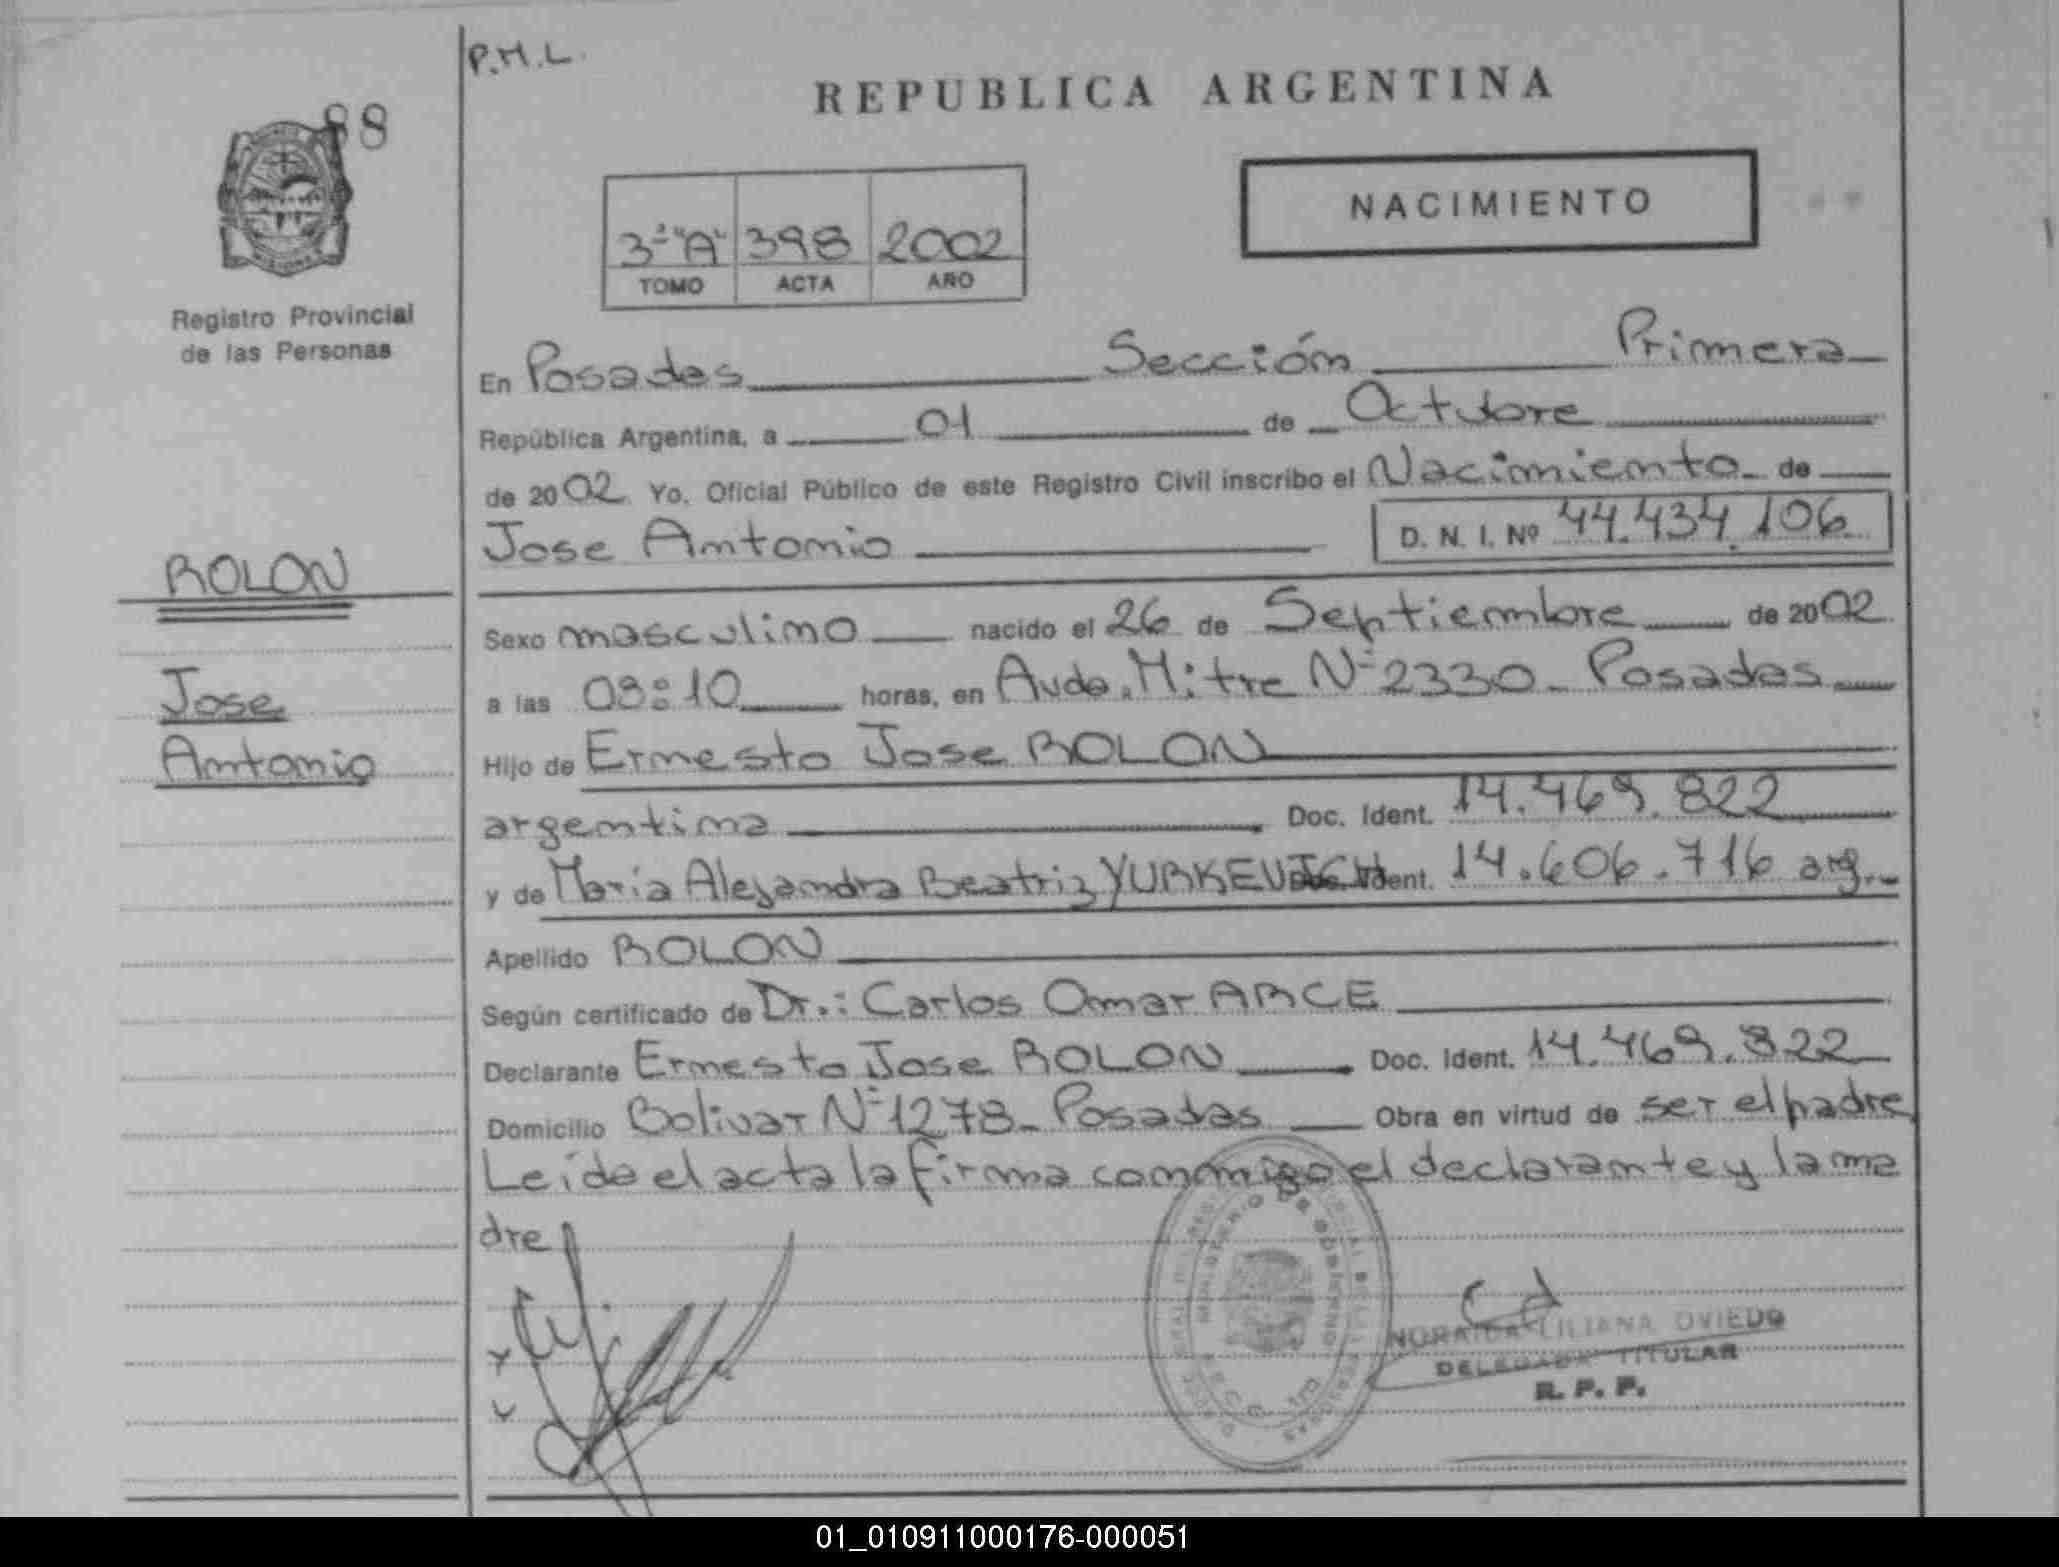 P.M.L.
88
REPUBLICA ARGENTINA
NACIMIENTO
3º "A" 398 2002
TOMO ACTA AÑO
Registro Provincial
de las Personas
En Posadas Sección Primera
República Argentina, a 01 de Octubre
de 2002 Yo, Oficial Público de este Registro Civil inscribo el Nacimiento de
Jose Antonio D. N. I. Nº 44.434.106
ROLON
Jose
Antonio
Sexo masculino nacido el 26 de Septiembre de 2002
a las 08:10 horas, en Avda. Mitre Nº 2330 - Posadas
Hijo de Ernesto Jose ROLON
argentina Doc. Ident. 14.469.822
y de María Alejandra Beatriz YURKEVICH Doc. Ident. 14.606.716 arg.
Apellido ROLON
Según certificado de Dr.: Carlos Omar ARCE
Declarante Ernesto Jose ROLON Doc. Ident. 14.469.822
Domicilio Bolivar Nº 1278 - Posadas Obra en virtud de ser el padre
Leída el acta la firma conmigo el declarante y la ma
dre
MINISTERIO DE GOBIERNO
NORAIDA LILIANA OVIEDO
DELEGADA TITULAR
R. P. P.
01_010911000176-000051